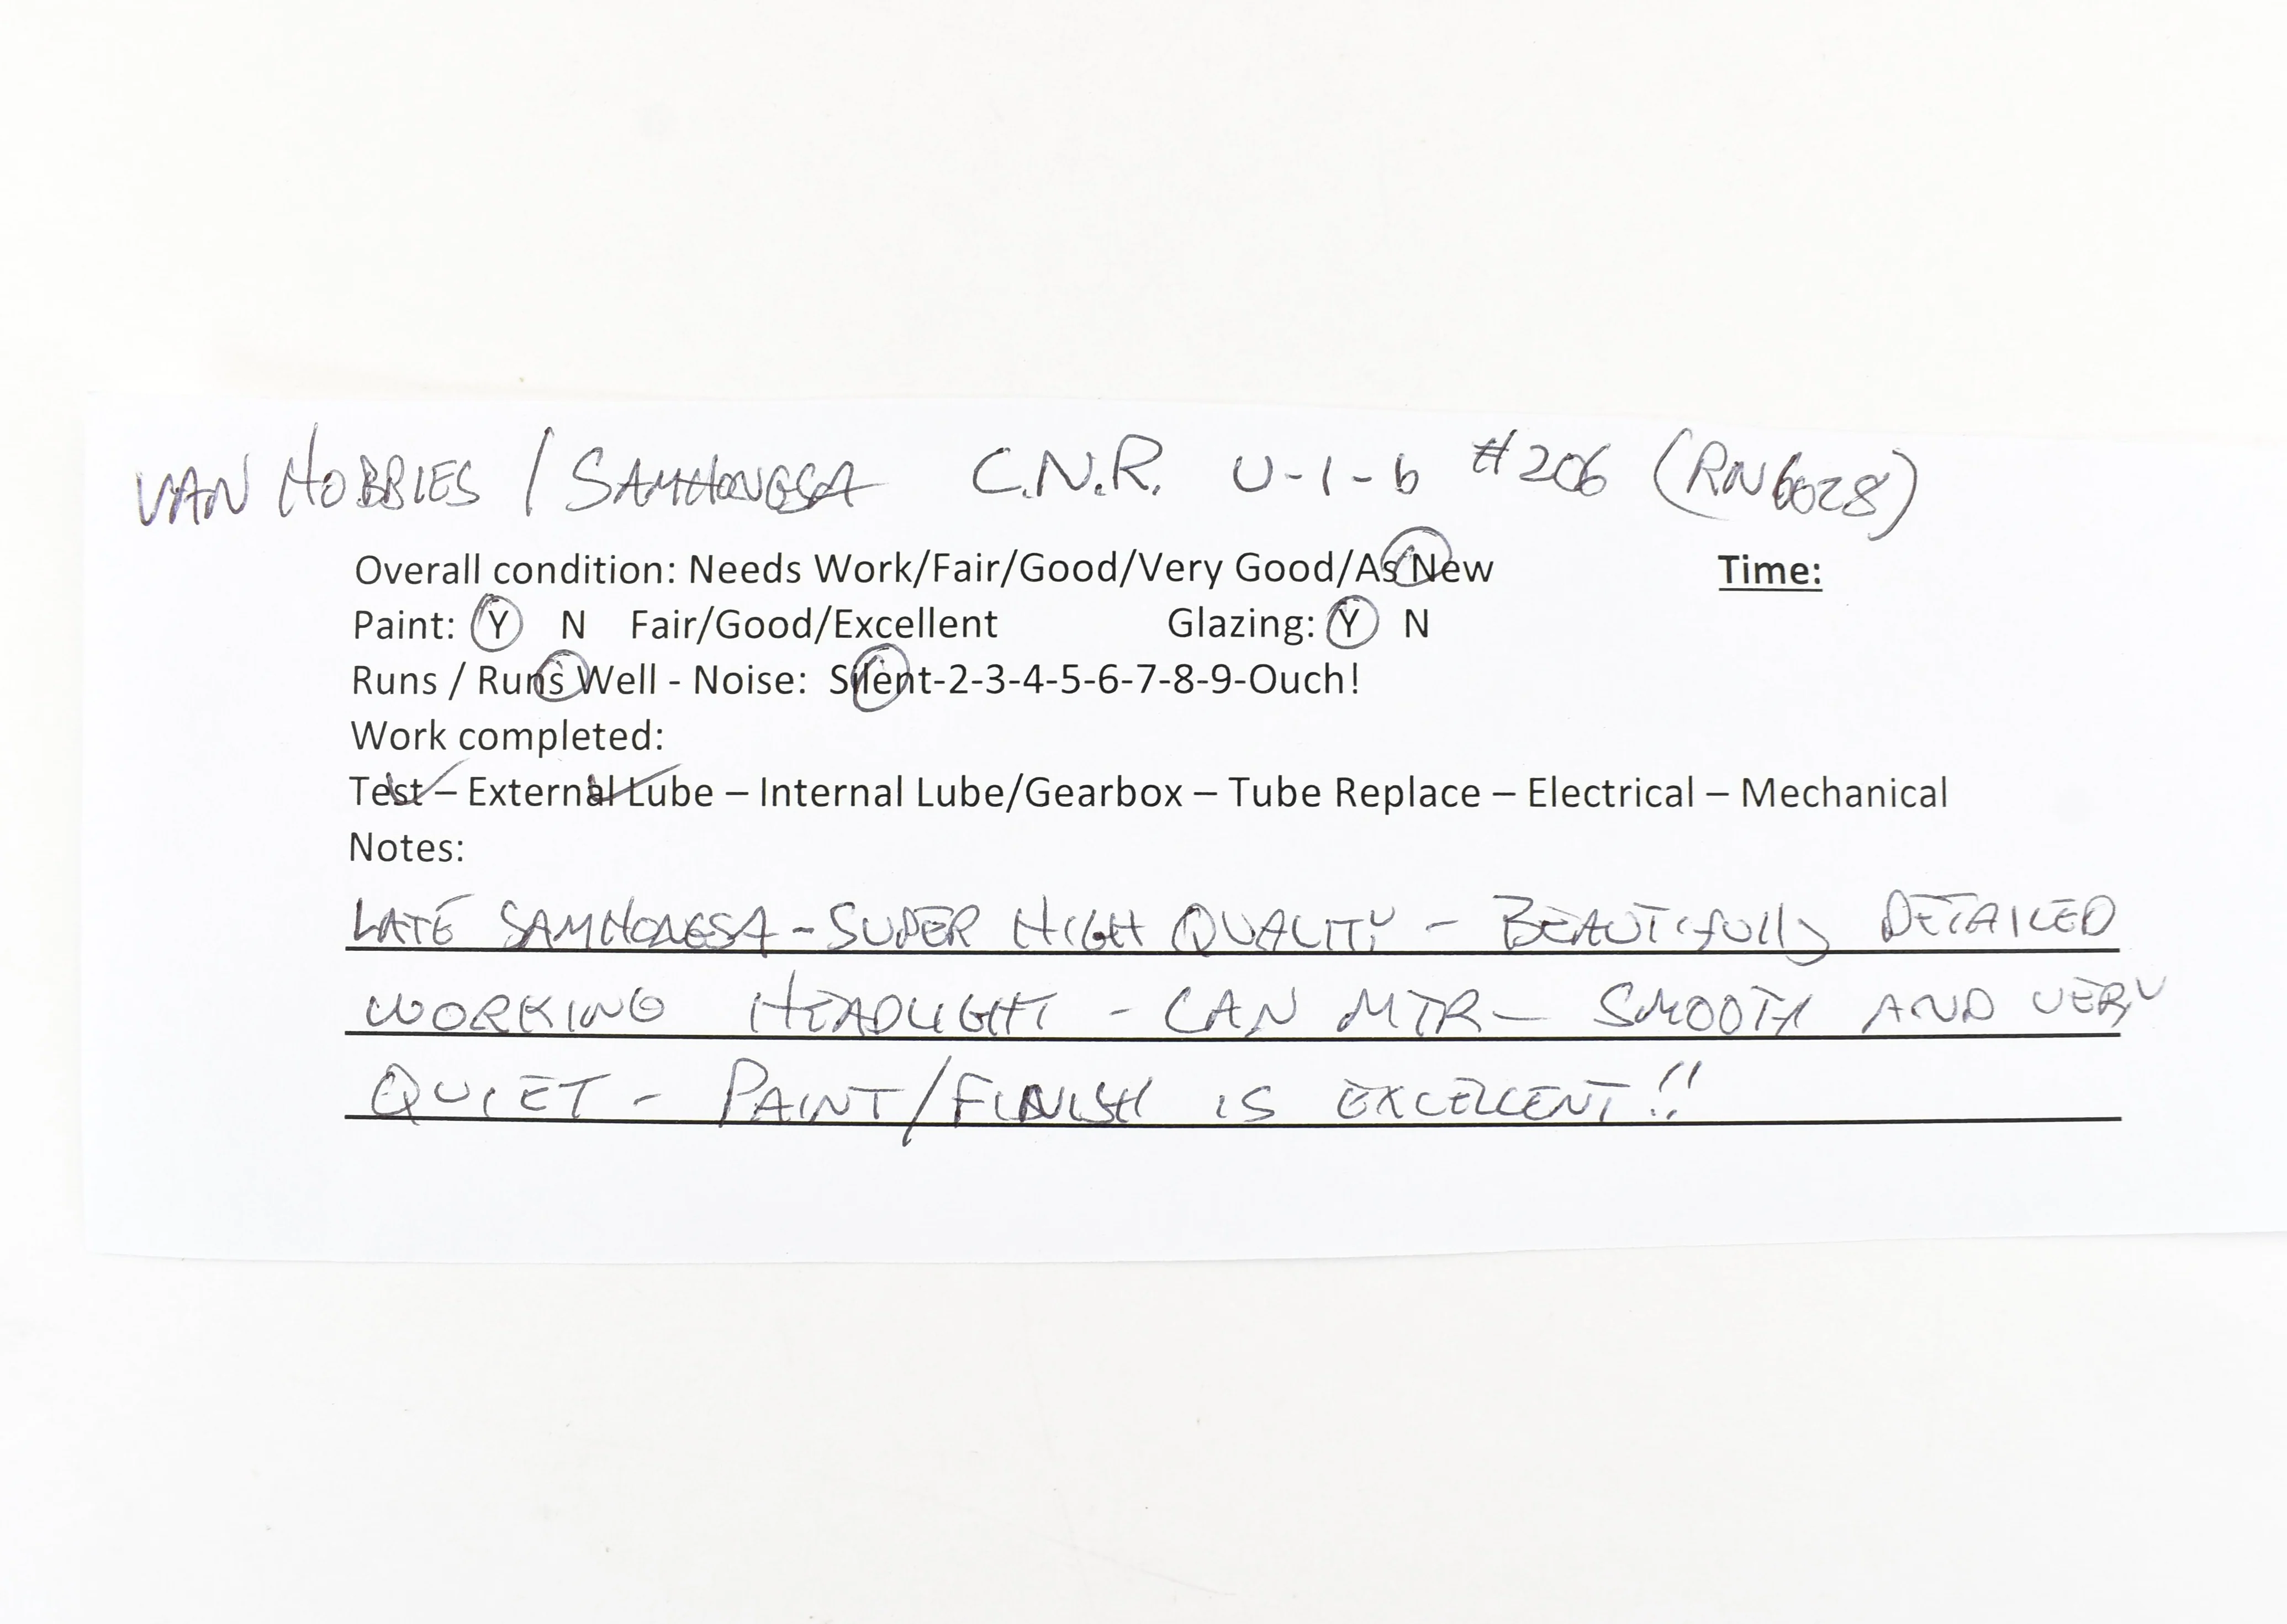 VAN HOBBIES / SAMHONGSA C.N.R. U-1-b #206 (RN6028)
Overall condition: Needs Work/Fair/Good/Very Good/As New Time:
Paint: Y N Fair/Good/Excellent Glazing: Y N
Runs / Runs Well - Noise: Silent-2-3-4-5-6-7-8-9-Ouch!
Work completed:
Test – External Lube – Internal Lube/Gearbox – Tube Replace – Electrical – Mechanical
Notes:
LATE SAMHONGSA - SUPER HIGH QUALITY - BEAUTifully DETAILED
WORKING HEADLIGHT - CAN MTR - SMOOTH AND VERY
QUIET - PAINT/FINISH IS EXCELLENT!!